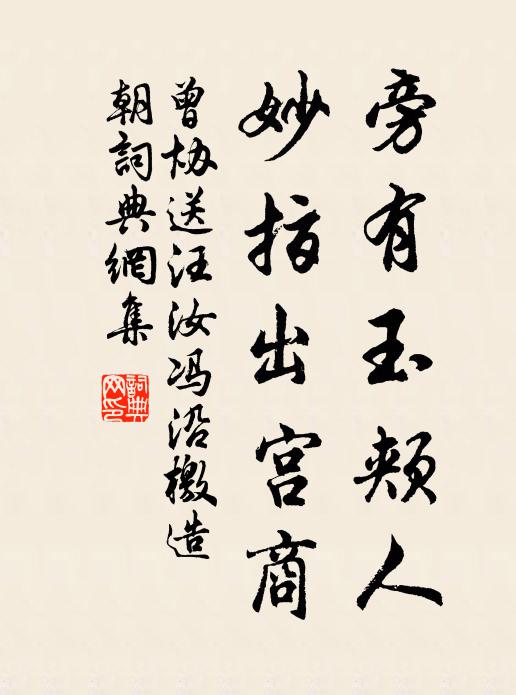 旁有玉頰人
妙指出宫商
曾协送汪汝冯沿檄造
朝詞典網集
詞典
网印